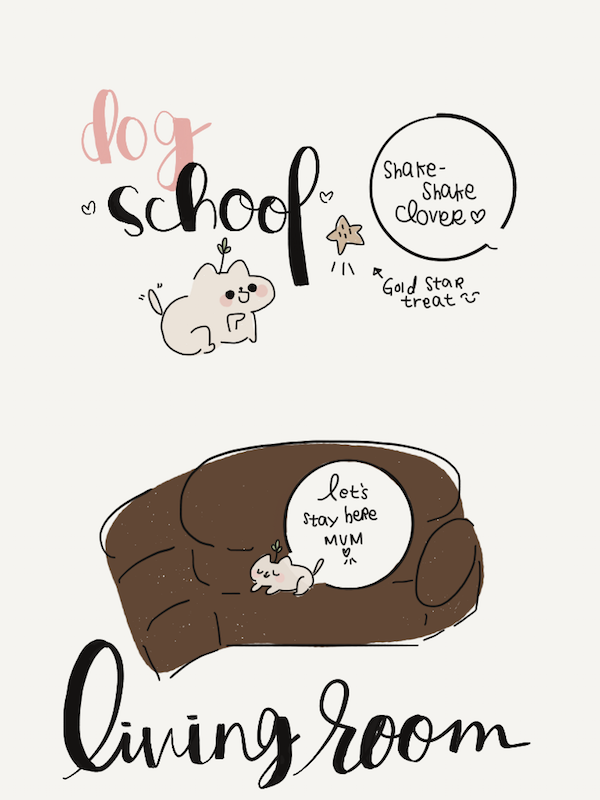 dog
school
Shake-
Shake
Clover
Gold Star
treat
let's
stay here
MUM
living room